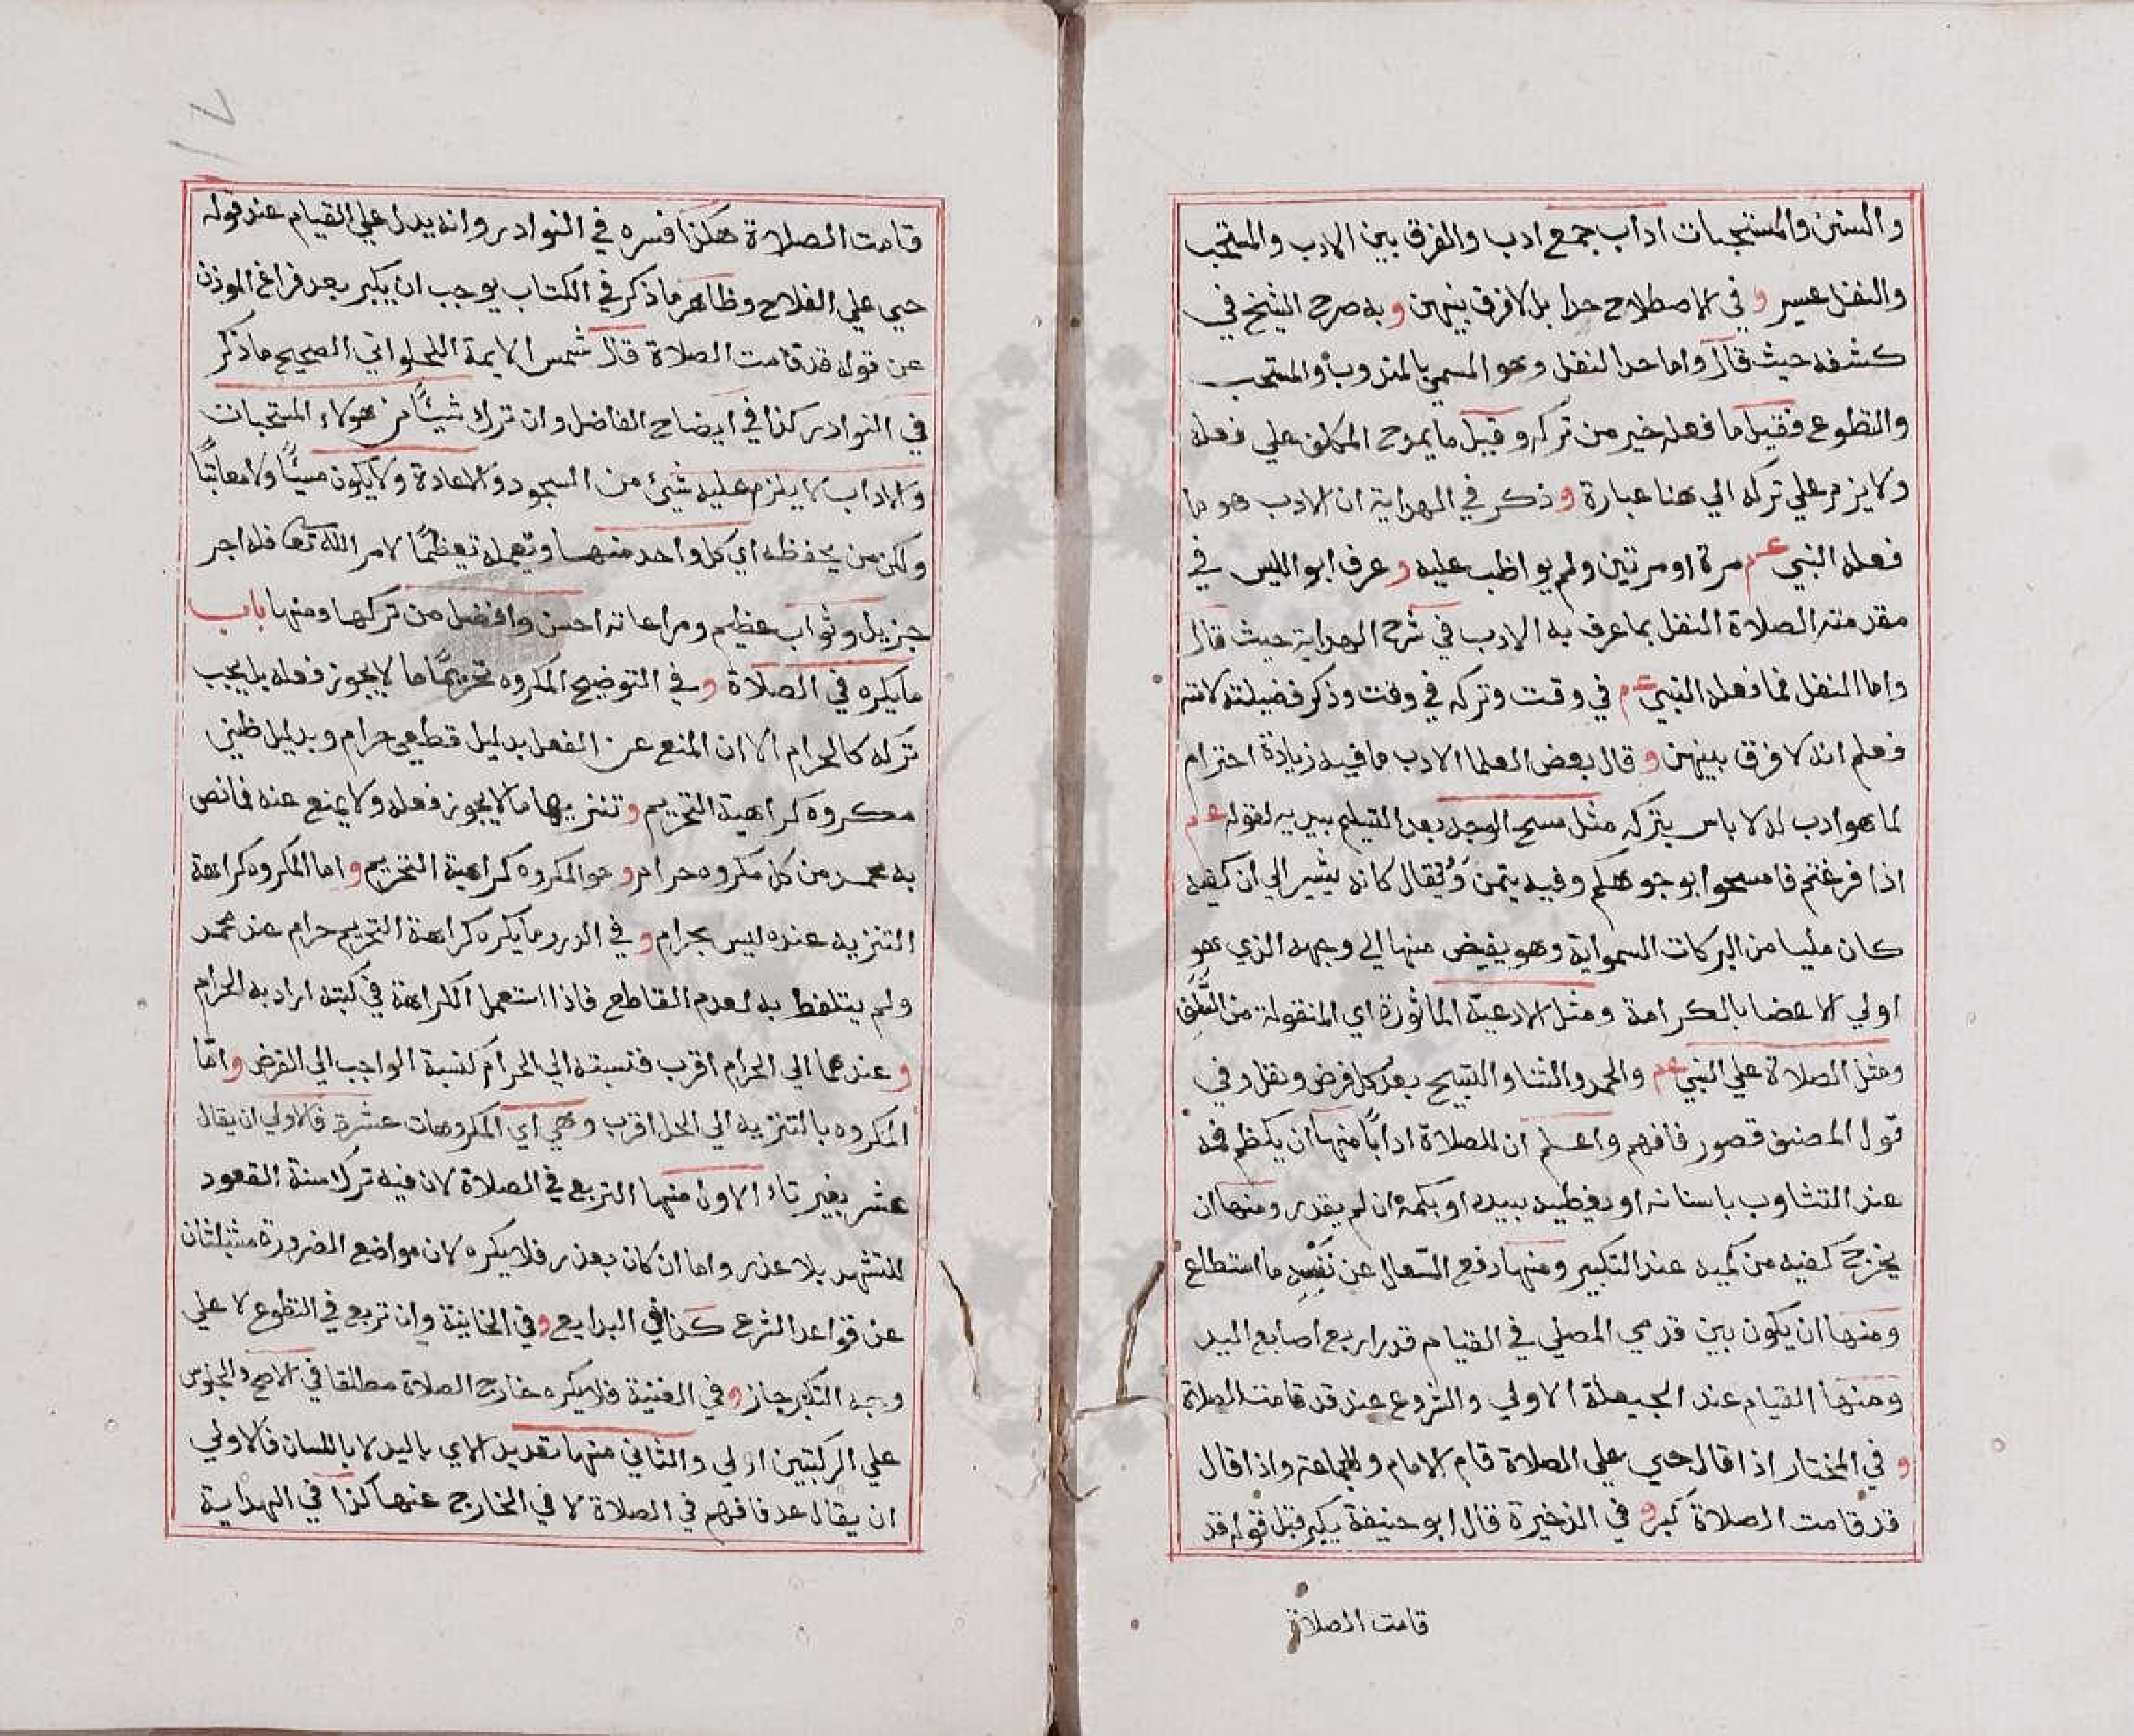 والسنن والمستحبات اداب جمع ادب والفرق بين الادب والمستحب
والنفل عسير وفي الاصطلاح حدا بل لا فرق بينهن وبه صرح الشيخ في
كشفه حيث قال واما حد النفل وهو المسمي بالمندوب والمستحب
والتطوع فقيل ما فعله خير من تركه وقيل ما يمدح المكلف علي فعله
ولا يذم علي تركه الي هنا عبارة وذكر في الهداية ان الادب هو ما
فعله النبي عم مرة او مرتين ولم يواظب عليه وعرف ابو الليس في
مقدمته الصلاة النفل بما عرف به الادب في شرح الهداية حيث قال
واما النفل فما فعله النبي عم في وقت وتركه في وقت وذكر فضيلته لامته
فعلم انه لا فرق بينهن وقال بعض العلما الادب ما فيه زيادة احترام
لما هو ادب له لا باس بتركه مثل مسح الوجه بعد التسليم بيديه لقوله عم
اذا فرغتم فامسحوا بوجوهكم وفيه يتمن ويقال كانه يشير الي ان كفيه
كان مليا من البركات السمواية وهو يفيض منها الي وجهه الذي هو
اولي الاعضا بالكرامة ومثل الادعية الماثورة اي المنقولة من
ومثل الصلاة علي النبي عم والحمد والثنا والتسبيح بعد كل فرض ونفل وفي
قول المصنف قصور فافهم واعلم ان للصلاة ادابا منها ان يكظم فمه
عند التثاوب باسنانه او يغطيه بيده او بكمه ان لم يقدر ومنها ان
يخرج كفيه من كميه عند التكبير ومنها دفع السعال عن نفسه ما استطاع
ومنها ان يكون بين قدمي المصلي في القيام قدر اربع اصابع اليد
ومنها القيام عند الحيعلة الاولي والشروع عند قد قامت الصلاة
وفي المختار اذا قال حي علي الصلاة قام الامام والجماعة واذا قال
قد قامت الصلاة كبر وفي الذخيرة قال ابو حنيفة يكبر قبل قوله قد
قامت الصلاة
١٧
قامت الصلاة هكذا فسره في النوادر وانه يدل علي القيام عند قوله
حي علي الفلاح وظاهر ما ذكر في الكتاب يوجب ان يكبر بعد فراغ الموذن
عن قوله قد قامت الصلاة قال شمس الايمة الحلواني الصحيح ما ذكر
في النوادر كذا في ايضاح الفاضل وان ترك شيئًا من هولاء المستحبات
والاداب لا يلزم عليه شئ من السجود والاعادة ولا يكون مسيئًا ولا معاتبًا
ولكن من يحفظه اي كل واحد منها وتعمله تعظيمًا لامر الله تعا فله اجر
جزيل وثواب عظيم ومراعاته احسن وافضل من تركها ومنها باب
ما يكره في الصلاة وفي التوضيح المكروه تحريمًا ما لا يجوز فعله بل يجب
تركه كالحرام الا ان المنع عن الفعل بدليل قطعي حرام وبدليل ظني
مكروه كراهية التحريم وتنزيها ما لا يجوز فعله ولا يمنع عنه فانص
به محمد من كل مكروه حرام وهو المكروه كراهية التحريم واما المكروه كراهة
التنزيه عنده ليس بحرام وفي الدرر ما يكره كراهة التحريم حرام عند محمد
ولم يتلفظ به لعدم القاطع فاذا استعمل الكراهة في كتبه اراد به الحرام
وعندهما الي الحرام اقرب فنسبته الي الحرام كنسبة الواجب الي الفرض واما
المكروه بالتنزيه الي الحل اقرب وهي اي المكروهات عشرة فالاولي ان يقال
عشر بغير تاء الاول منها التربع في الصلاة لان فيه ترك سنة القعود
للتشهد بلا عذر واما ان كان بعذر فلا يكره لان مواضع الضرورة مستثنات
عن قواعد الشرع كذا في البدايع وفي الخانية وان تربع في التطوع لا علي
وجه التكبر جاز وفي الغنية فلا يكره خارج الصلاة مطلقا في الاصح والجلوس
علي الركبتين اولي والثاني منها تعديد الاي باليد لا باللسان فالاولي
ان يقال عد فافهم في الصلاة لا في الخارج عنها كذا في الهداية